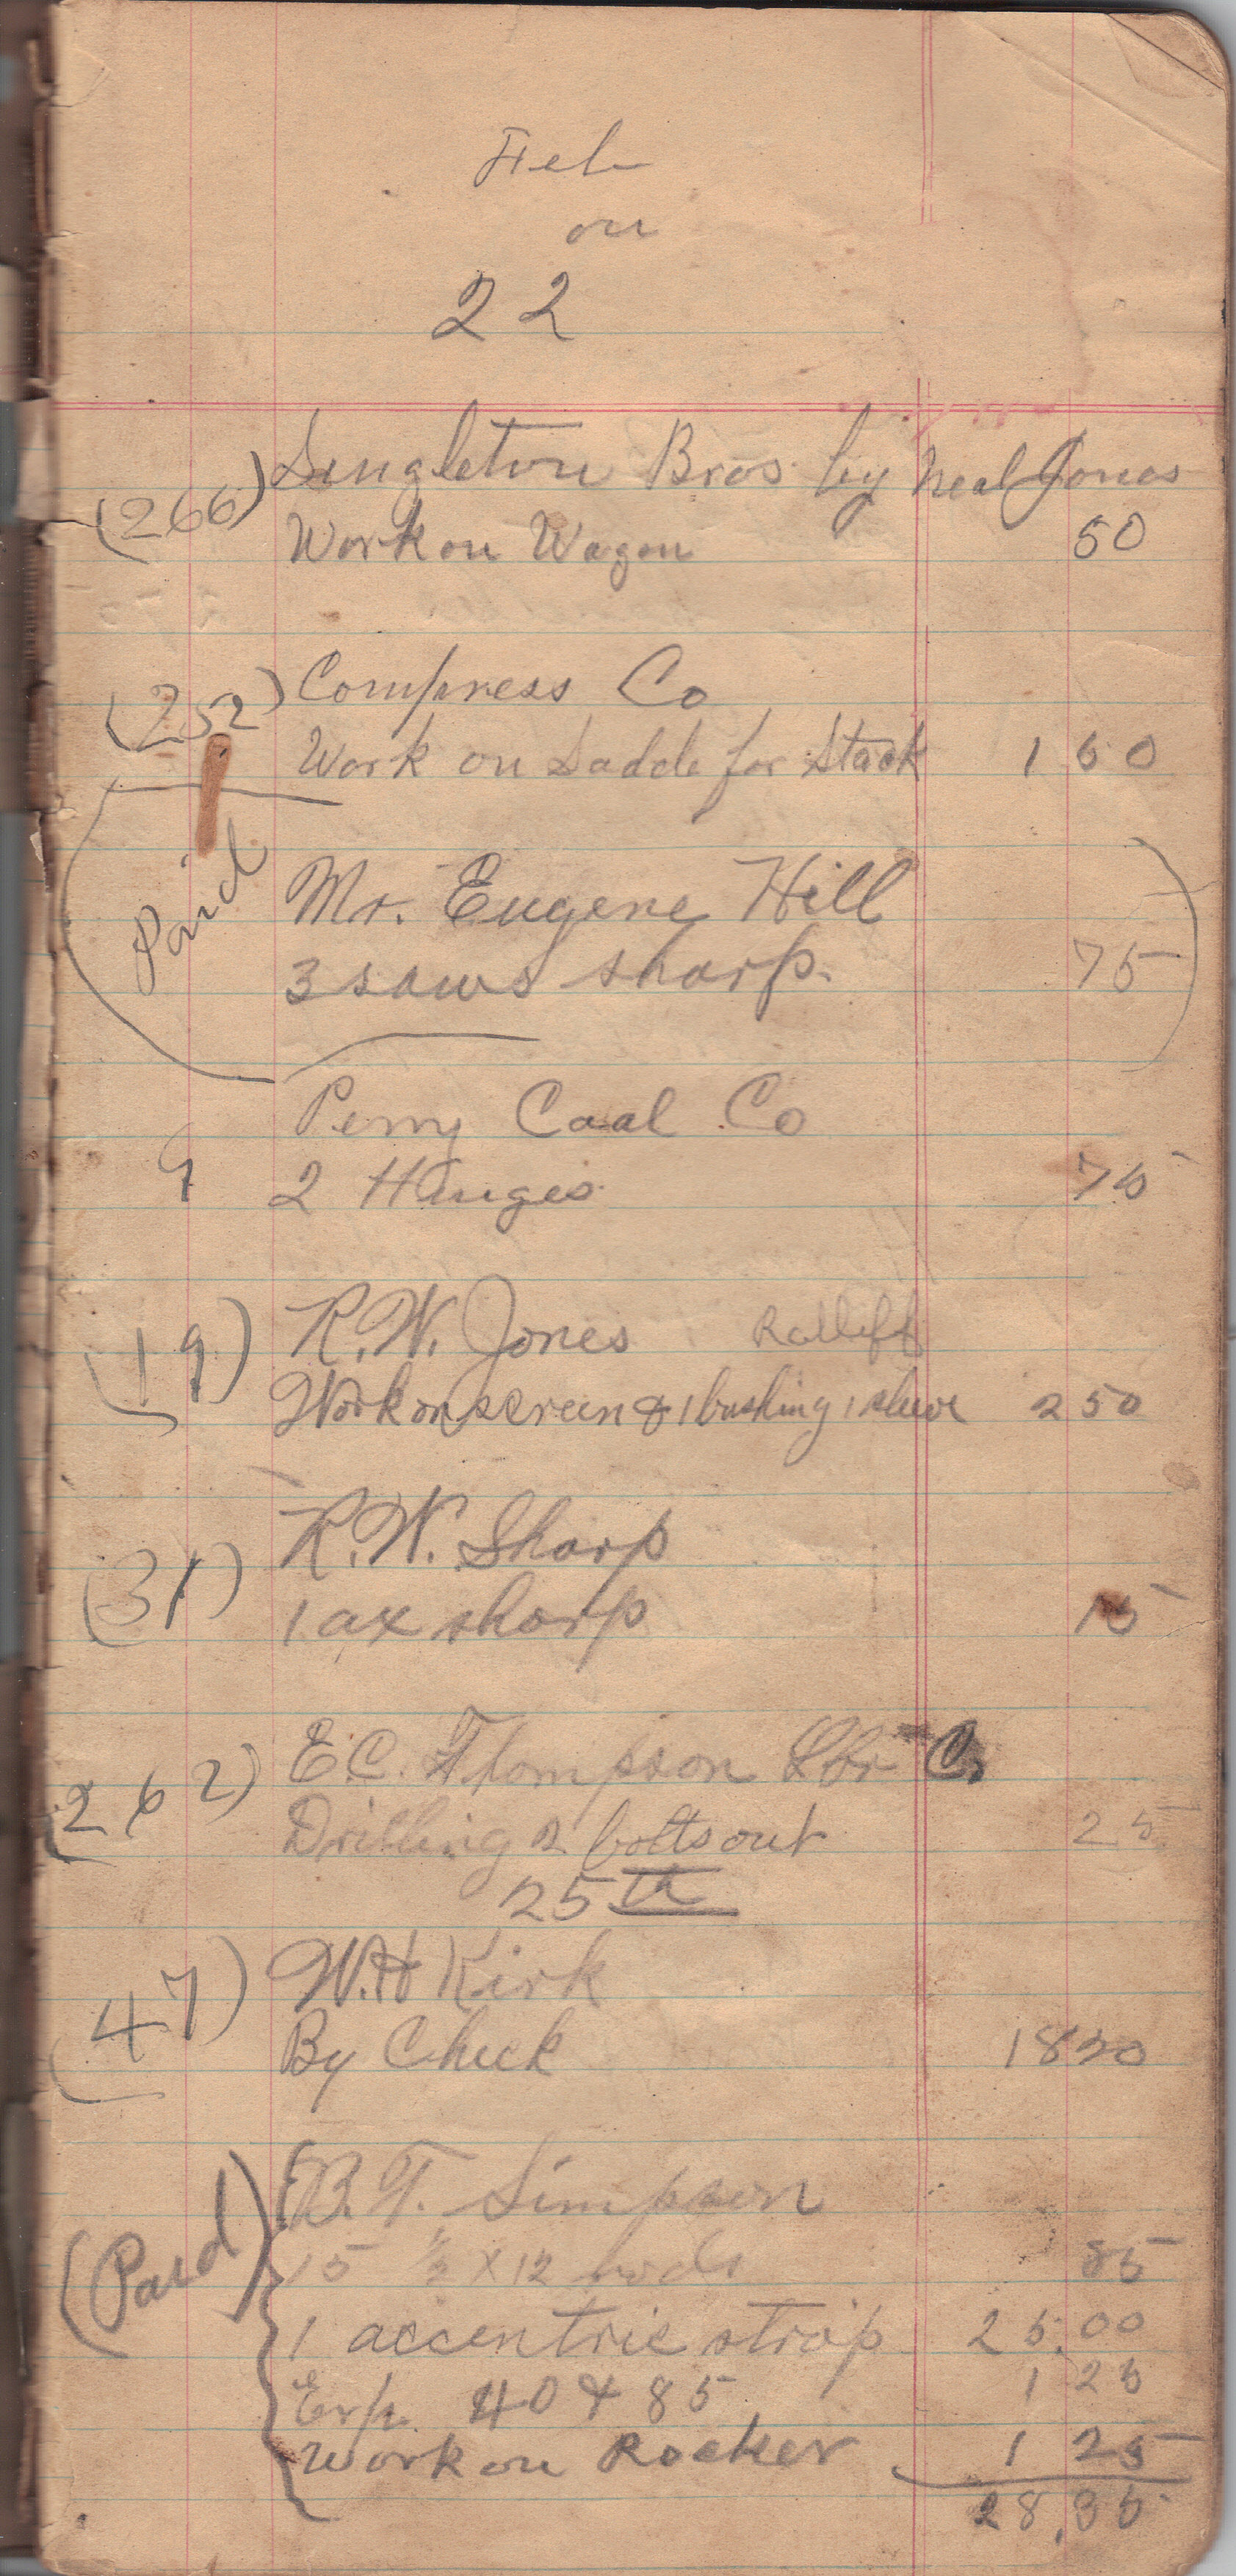 Feb
on
22
(266) Singleton Bros by Neal Jones
Work on Wagon 50
(252) Compress Co
Work on Saddle for Stack 1 50
Paid
Mr. Eugene Hill
3 saws sharp. 75
Perry Coal Co
9 2 Hinges 75
(19) R.W. Jones Ratliff
Work on screen & 1 bushing 1 sleeve 2 50
(31) R.W. Sharp
1 ax sharp 15
(262) E.C. Thompson Lbr Co
Drilling 2 bolts out 25
25th
(47) W.H Kirk
By Check 18 20
(Paid) B.T. Simpson
15 ½ X 12 rods 85
1 accentric strap 25.00
Exp. 40 & 85 1 25
Work on Rocker 1 25
28.35